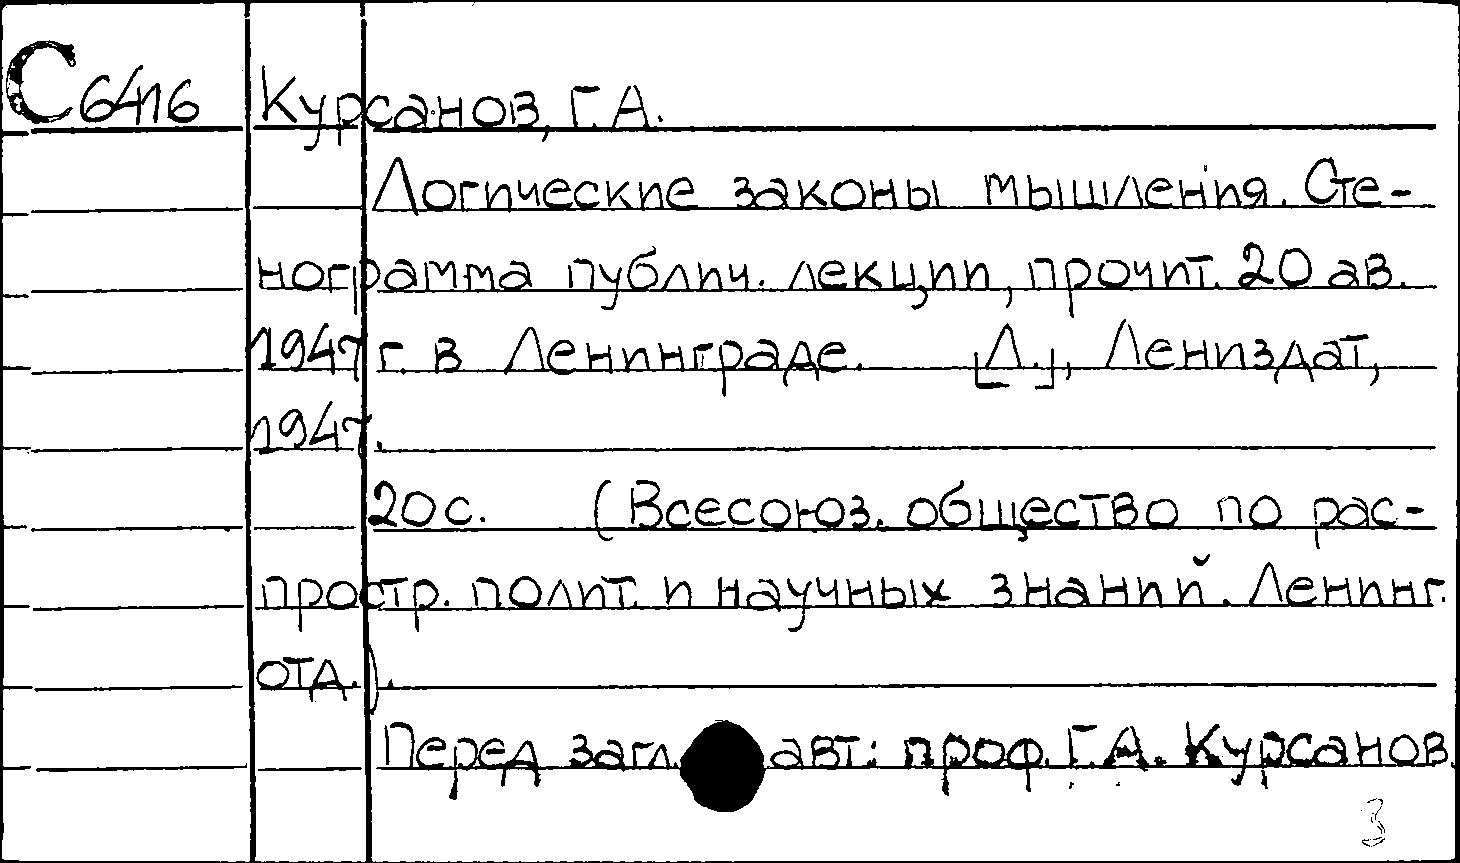 С 6416 Курсанов, Г.А.
Логические законы мышления. Сте-
нограмма публич. лекции, прочит. 20 ав.
1947 г. в Ленинграде. [Л.], Лениздат,
1947.
20 с. (Всесоюз. общество по рас-
простр. полит. и научных знаний. Ленинг.
отд.).
Перед загл. авт.: проф. Г.А. Курсанов.
3